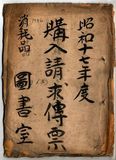 昭和十七年度
購入請求傳票
消耗品
圖書室